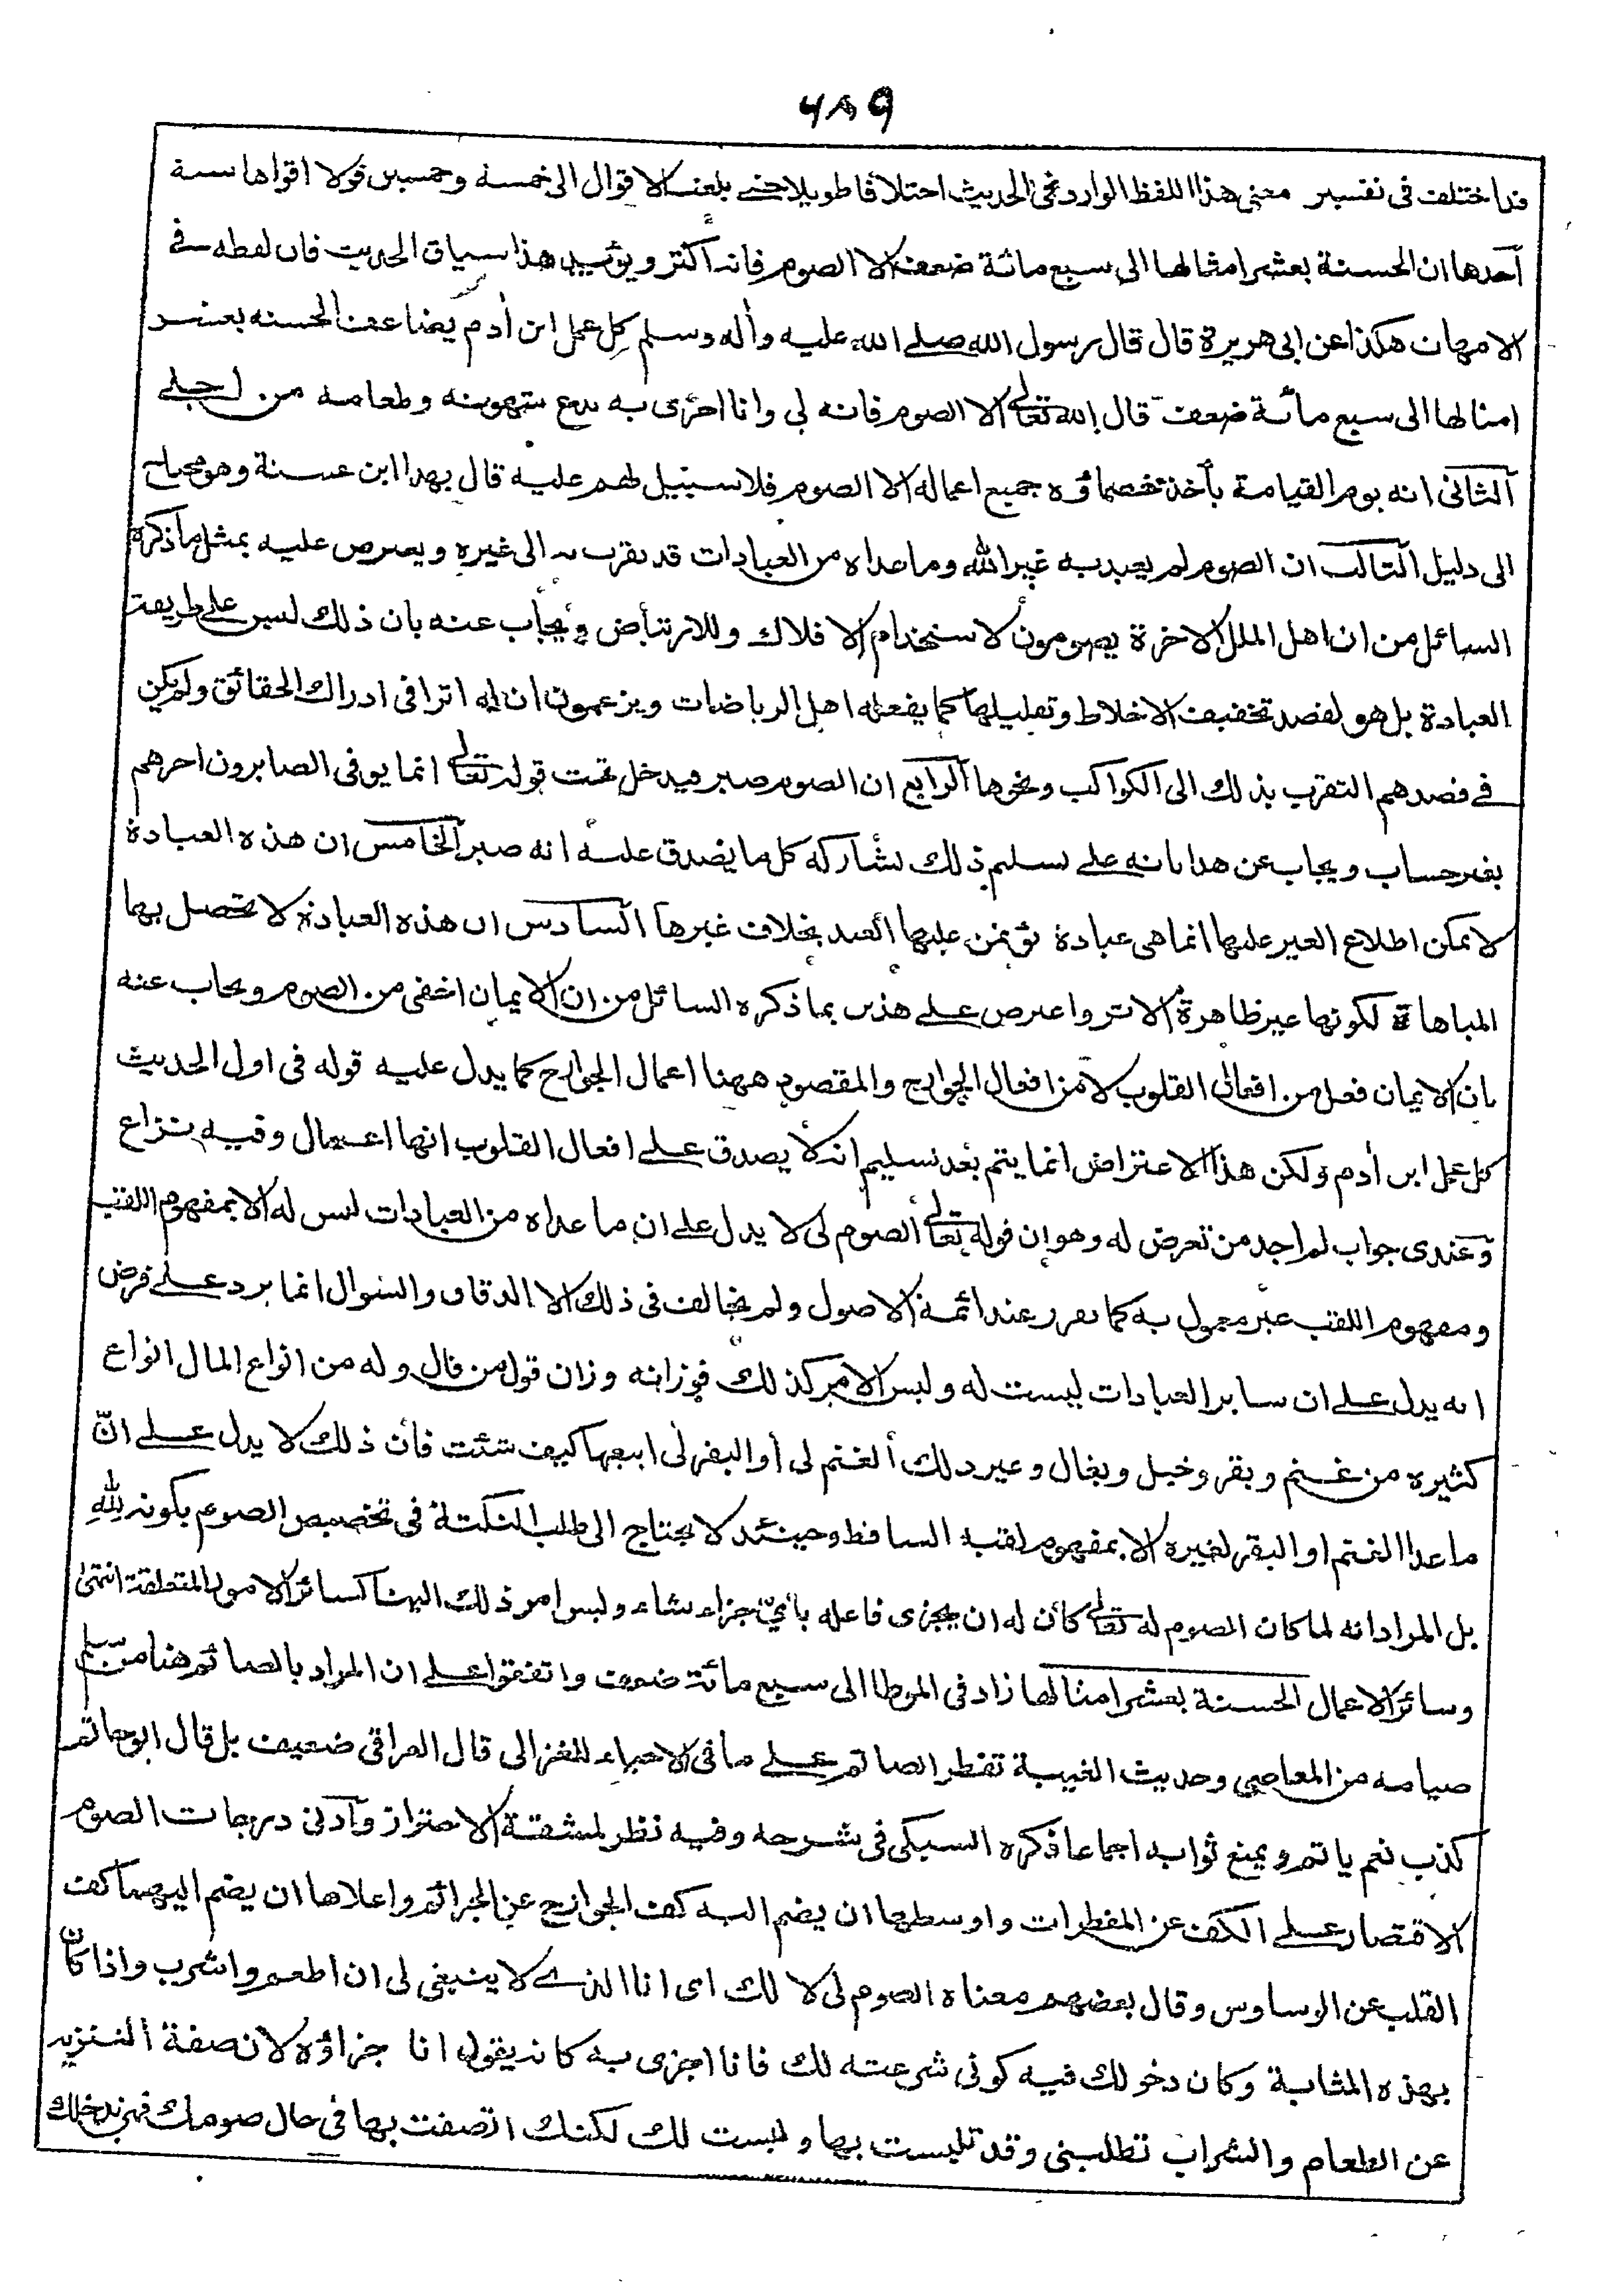 ٦٨٩
قد اختلف فى تفسير معنى هذا اللفظ الوارد فى الحديث اختلافا طويلا حتى بلغت الاقوال الى خمسة وخمسين قولا اقواها ستة
احدها ان الحسنة بعشر امثالها الى سبع مائة ضعف الا الصوم فانه أكثر ويؤيد هذا سياق الحديث فان لفظه فى
الامهات هكذا عن ابى هريرة قال قال رسول الله صلے الله عليه وأله وسلم كل عمل ابن أدم يضاعف الحسنه بعشر
امثالها الى سبع مائة ضعف قال الله تعالى الا الصوم فانه لى وانا اجزى به يدع شهوته وطعامه من اجلے
الثانى انه يوم القيامة يأخذ خصماؤه جميع اعماله الا الصوم فلا سبيل لهم عليه قال بهذا ابن عيينة وهو محتاج
الى دليل الثالث ان الصوم لم يعبد به غير الله وما عداه من العبادات قد يقرب به الى غيره ويعترض عليه بمثل ما ذكره
السائل من ان اهل الملل الاخرة يصومون لاستخدام الافلاك وللارتياض ويجاب عنه بان ذلك ليس على طريقة
العبادة بل هو لقصد تخفيف الاخلاط وتقليلها كما يفعله اهل الرياضات ويزعمون ان له اثرا فى ادراك الحقائق ولم يكن
فى قصدهم التقرب بذلك الى الكواكب ونحوها الرابع ان الصوم صبر فيدخل تحت قوله تعالى انما يوفى الصابرون اجرهم
بغير حساب ويجاب عن هذا بانه على تسليم ذلك يشاركه كل ما يصدق عليه انه صبر الخامس ان هذه العبادة
لا يمكن اطلاع الغير عليها انما هى عبادة يؤتمن عليها العبد بخلاف غيرها السادس ان هذه العبادة لا تحصل بها
المباهاة لكونها غير ظاهرة الاثر واعترض علے هذين بما ذكره السائل من ان الايمان اخفى من الصوم ويجاب عنه
بان الايمان فعل من افعال القلوب لا من افعال الجوارح والمقصود ههنا اعمال الجوارح كما يدل عليه قوله فى اول الحديث
كل عمل ابن أدم ولكن هذا الاعتراض انما يتم بعد تسليم انه لا يصدق علے افعال القلوب انها اعمال وفيه نزاع
وعندى جواب لم اجد من تعرض له وهو ان قوله تعالى الصوم لى لا يدل على ان ما عداه من العبادات ليس له الا بمفهوم اللقب
ومفهوم اللقب غير معمول به كما تقرر عند ائمة الاصول ولم يخالف فى ذلك الا الدقاق والسؤال انما يرد علے فرض
انه يدل علے ان ساير العبادات ليست له وليس الامر كذلك فوزانه وزان قول من قال وله من انواع المال انواع
كثيره من غنم وبقر وخيل وبغال وغير ذلك ألغنم لى أو البقر لى ابيعها كيف شئت فأن ذلك لا يدل علے انّ
ما عدا الغنم او البقر لغيره الا بمفهوم لقبه الساقط وحينئذ لا يحتاج الى طلب النكتة فى تخصيص الصوم بكونه لله
بل المراد انه لما كان الصوم له تعالى كان له ان يجزى فاعله بأىّ جزاء شاء وليس امر ذلك الينا كسائر الامور المتعلقة انتهى
وسائر الاعمال الحسنة بعشر امثالها زاد فى الموطا الى سبع مائة ضعف واتفقوا على ان المراد بالصائم هنا من سلم
صيامه من المعاصى وحديث الغيبة تفطر الصائم علے ما فى الاحياء للغزالى قال العراقى ضعيف بل قال ابو حاتم
كذب نعم ياثم ويمنع ثوابه اجماعا ذكره السبكى فى شرحه وفيه نظر لمشقة الاحتراز وأدنى درجات الصوم
الاقتصار علے الكف عن المفطرات واوسطها ان يضم اليه كف الجوارح عن الجرائم واعلاها ان يضم اليهما كف
القلب عن الوساوس وقال بعضهم معناه الصوم لى لا لك اى انا الذى لا ينبغى لى ان اطعم واشرب واذا كان
بهذه المثابة وكان دخولك فيه كونى شرعته لك فانا اجزى به كانه يقول انا جزاؤه لان صفة التنزيه
عن الطعام والشراب تطلبنى وقد تلبست بها وليست لك لكنك اتصفت بها فى حال صومك فهى تدخلك